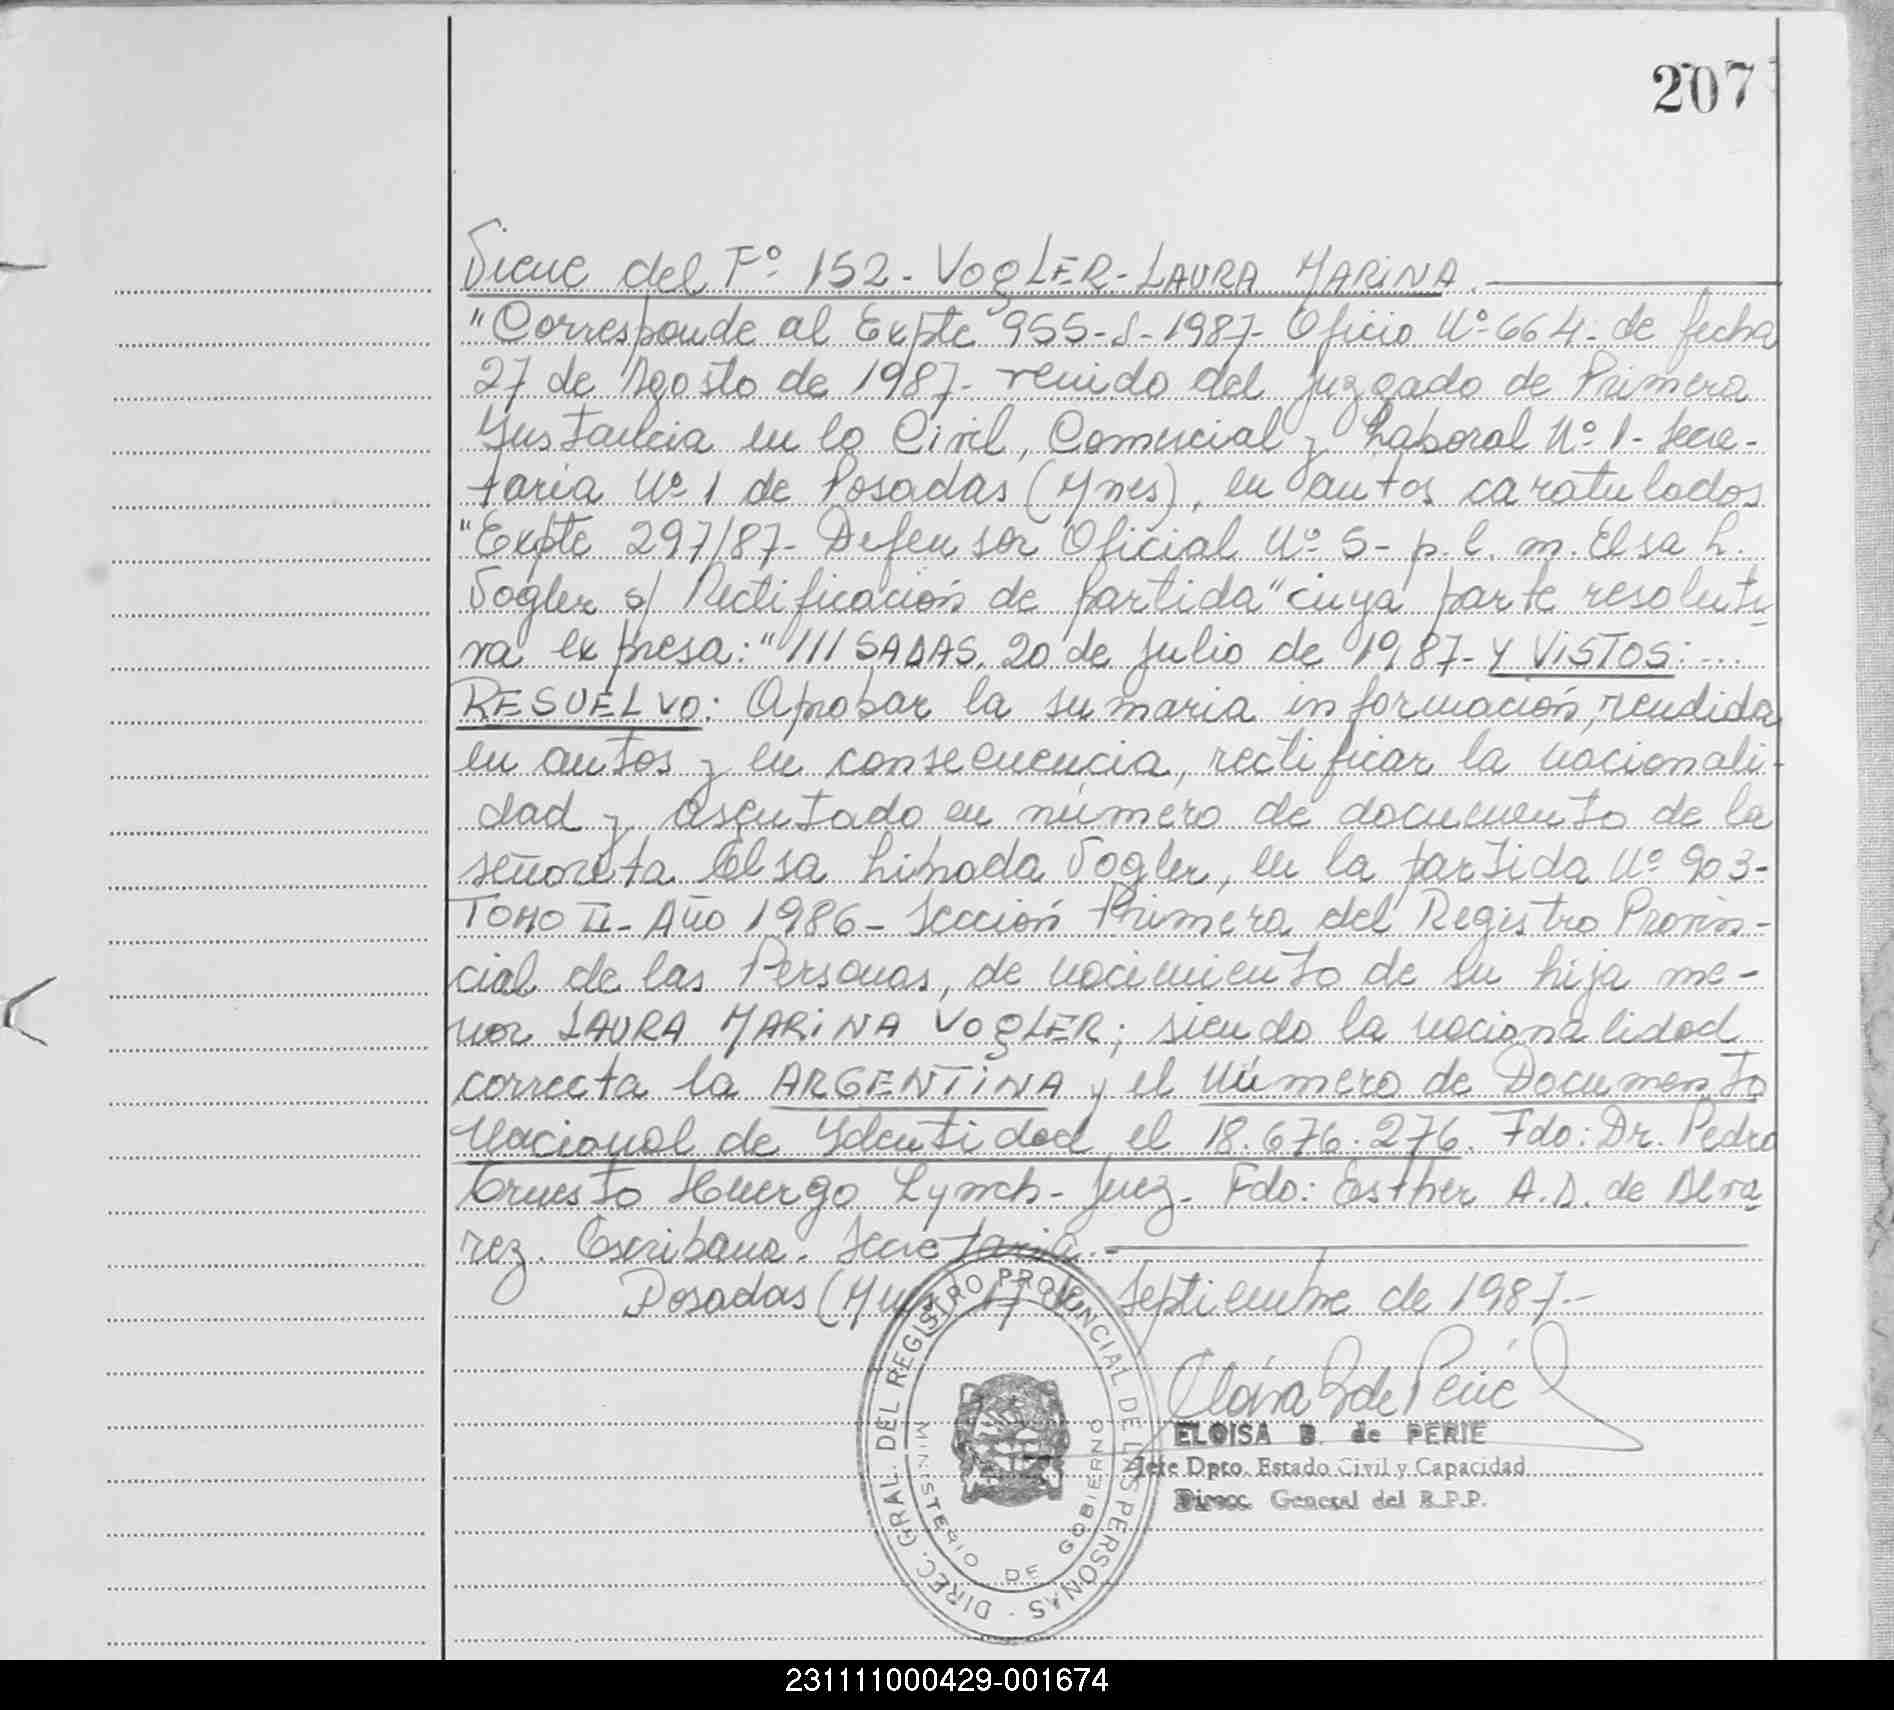 207
Viene del Fº 152 - VOGLER - LAURA MARINA.
"Corresponde al Expte 955-S-1987- Oficio Nº 664- de fecha
27 de Agosto de 1987- venido del Juzgado de Primera
Instancia en lo Civil, Comercial y Laboral Nº 1- Secre-
taria Nº 1 de Posadas (Mnes), en autos caratulados
"Expte 297/87- Defensor Oficial Nº 5- p. e. m. Elsa L.
Vogler s/ Rectificación de Partida" cuya parte resoluti-
va expresa: "///SADAS, 20 de Julio de 1987- Y VISTOS: ...
RESUELVO: Aprobar la sumaria información, rendida
en autos y en consecuencia, rectificar la nacionali-
dad y asentado en número de documento de la
señorita Elsa Vogler, en la partida Nº 903-
TOMO II- Año 1986- Sección Primera del Registro Provin-
cial de las Personas, de nacimiento de su hija me-
nor LAURA MARINA VOGLER; siendo la nacionalidad
correcta la ARGENTINA y el Número de Documento
Nacional de Identidad el 18.676.276. Fdo: Dr. Pedro
Ernesto Huergo Lynch- Juez. Fdo: Esther A.D. de Alva-
rez. Escribana. Secretaria.-
Posadas (Mnes) 17 de Septiembre de 1987.-
ELOISA B. de PERIE
Jefe Dpto. Estado Civil y Capacidad
Direcc. General del R.P.P.
DIREC. GRAL. DEL REGISTRO PROVINCIAL DE LAS PERSONAS -
MINISTERIO DE GOBIERNO
231111000429-001674